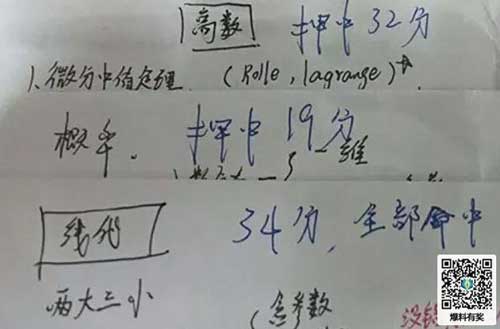 高数 押中32分
1、微分中值定理 (Rolle, lagrange)
概率. 押中19分
一维
线代 34分, 全部命中
两大三小
(含参数
爆料有奖